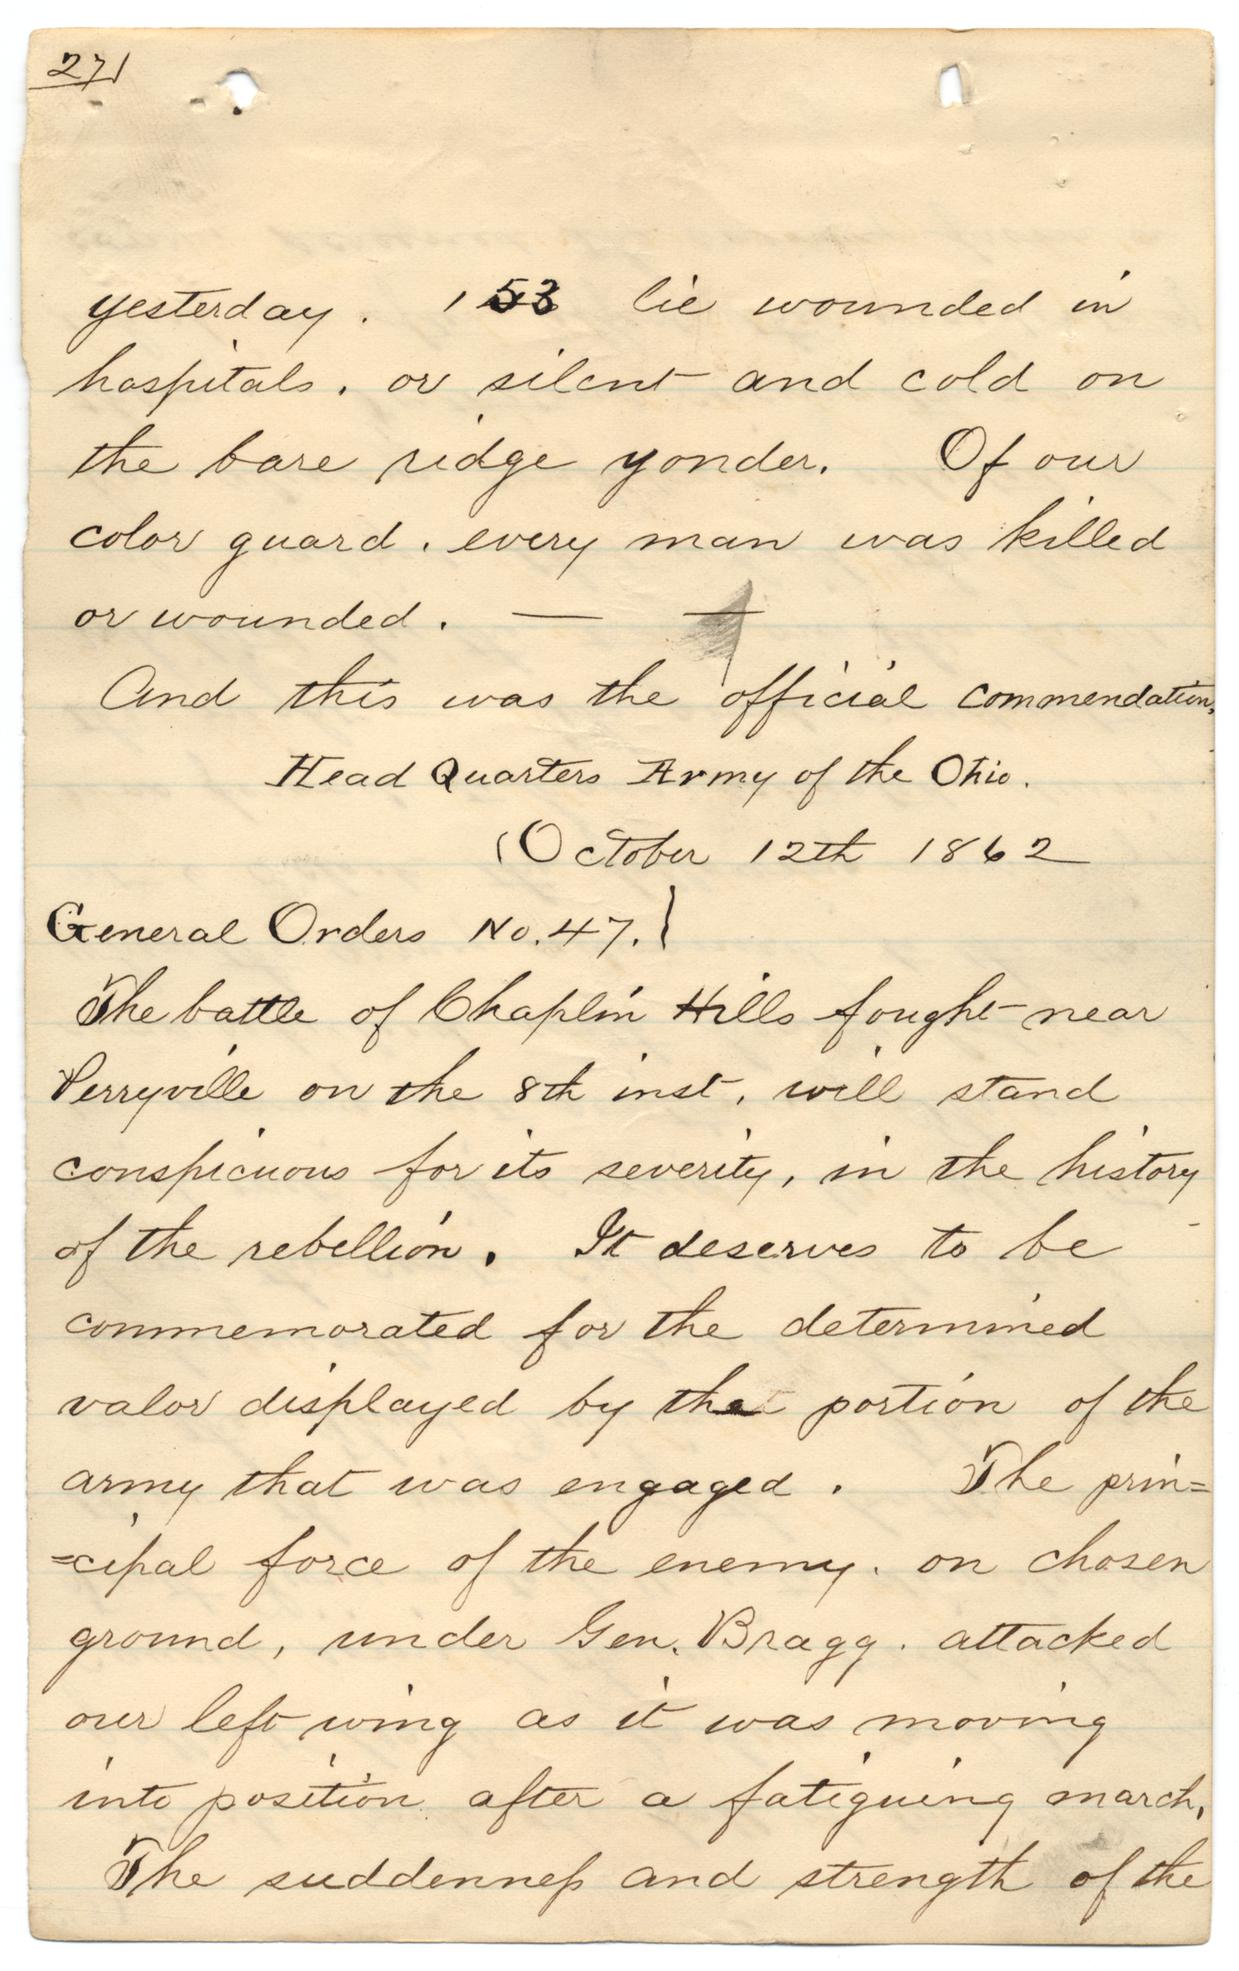 271
yesterday. 153 lie wounded in
hospitals, or silent and cold on
the bare ridge yonder. Of our
color guard, every man was killed
or wounded. — —
And this was the official commendation,
Head Quarters Army of the Ohio.
(October 12th 1862
General Orders No. 47. }
The battle of Chaplin Hills fought near
Perryville on the 8th inst, will stand
conspicuous for its severity, in the history
of the rebellion. It deserves to be
commemorated for the determined
valor displayed by the portion of the
army that was engaged. The prin=
=cipal force of the enemy, on chosen
ground, under Gen. Bragg, attacked
our left wing as it was moving
into position after a fatiguing march,
The suddenneſs and strength of the